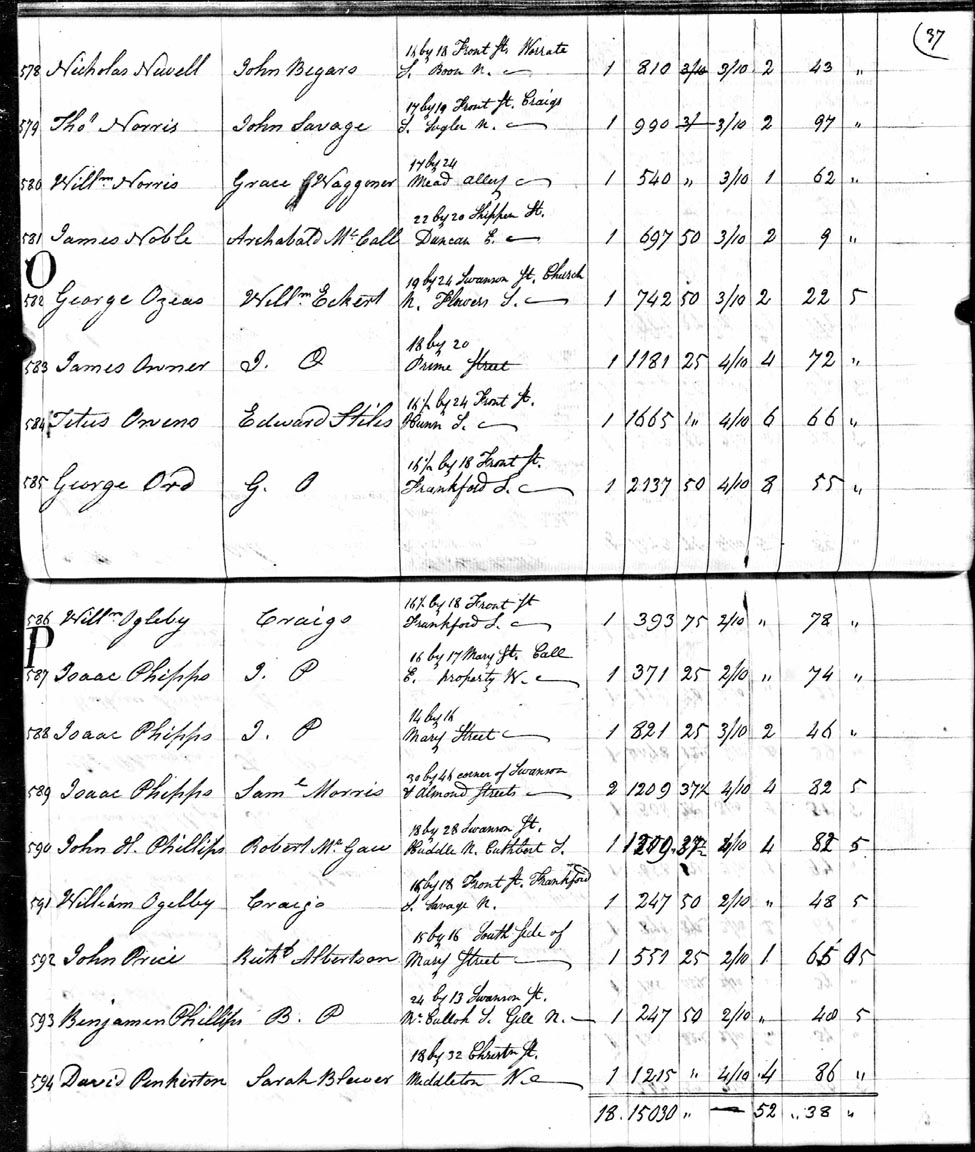 (37
16 by 18 Front St.
578 Nicholas Newell John Begars S. Boon N. 1 810 3/10 3/10 2 43 "
17 by 19 Front St. Craigs
579 Thos Norris John Savage S. N. 1 990 3/10 2 97 "
17 by 24
580 Willm Norris Grace Waggoner Mead alley 1 540 " 3/10 1 62 "
22 by 20 Shippen St.
581 James Noble Archabald Mc Call Duncan E. 1 697 50 3/10 2 9 "
O
19 by 24 Swanson St. Church
582 George Ozeas Willm Eckert N. Flowers S. 1 742 50 3/10 2 22 5
18 by 20
583 James Owner J. O Prime Street 1 1181 25 4/10 4 72 "
16½ by 24 Front St.
584 Titus Owens Edward Stiles S. 1 1665 " 4/10 6 66 "
16½ by 18 Front St.
585 George Ord G. O Frankford S. 1 2137 50 4/10 8 55 "
16½ by 18 Front St
586 Willm Ogleby Craigs Frankford S. 1 393 75 2/10 " 78 "
P
16 by 17 Mary St. Call
587 Isaac Phipps I. P E. property W. 1 371 25 2/10 " 74 "
14 by 16
588 Isaac Phipps I. P Mary Street 1 821 25 3/10 2 46 "
30 by 46 corner of Swanson
589 Isaac Phipps Saml Morris & Almond Streets 2 1209 37½ 4/10 4 82 5
18 by 28 Swanson St.
590 John H. Phillips Robert Mc Gaw Huddle N. Cuthbert S. 1 1209 37½ 4/10 4 82 5
16 by 18 Front St. Frankford
591 William Ogelby Craigs S. Savage N. 1 247 50 2/10 " 48 5
15 by 16 South Side of
592 John Price Albertson Mary Street 1 551 25 2/10 1 65 5
24 by 13 Swanson St.
593 Benjamen Phillips B. P Mc Culloh S. Gill N. 1 247 50 2/10 " 48 5
18 by 32 Christn St.
594 David Penkerton Sarah Blewer Middleton W 1 1215 " 4/10 4 86 "
18 15030 " 52 " 38 "